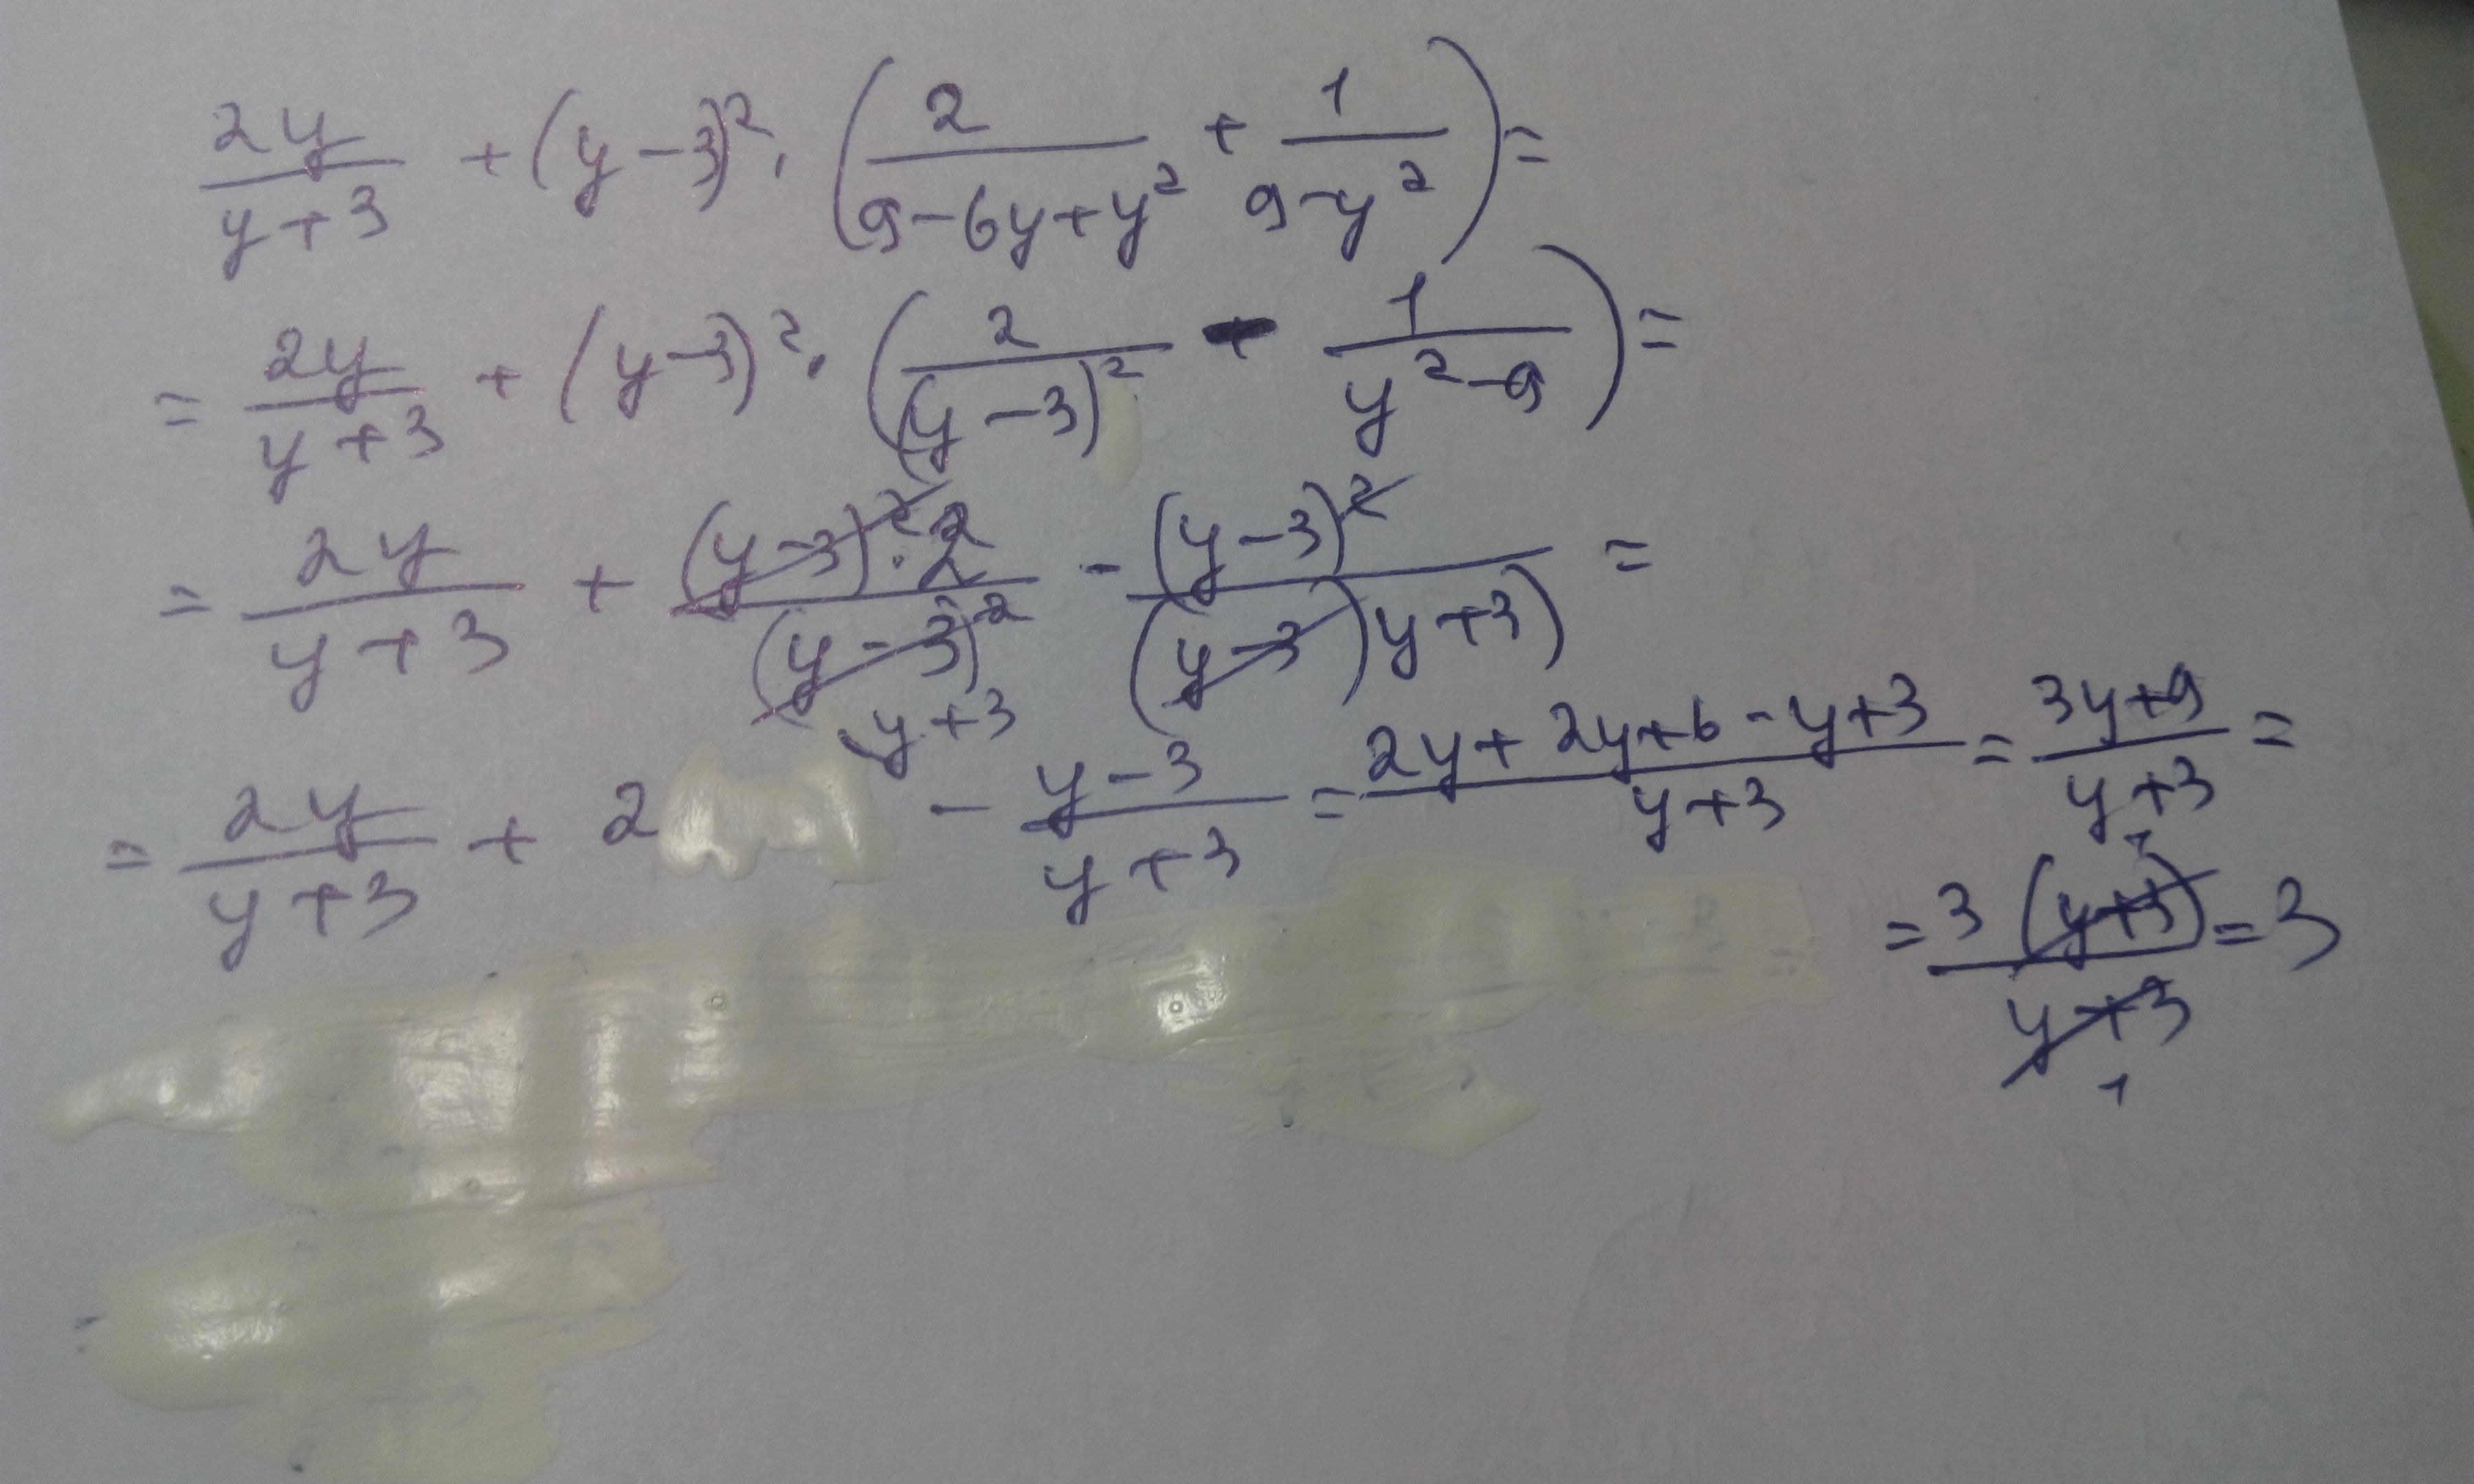 2y/(y+3) + (y-3)² · (2/(9-6y+y²) + 1/(9-y²)) =
= 2y/(y+3) + (y-3)² · (2/(y-3)² - 1/(y²-9)) =
= 2y/(y+3) + (y-3)²·2/(y-3)² - (y-3)²/((y-3)(y+3)) =
y+3
= 2y/(y+3) + 2 - (y-3)/(y+3) = (2y+2y+6-y+3)/(y+3) = (3y+9)/(y+3) =
= 3(y+3)/(y+3) = 3
1